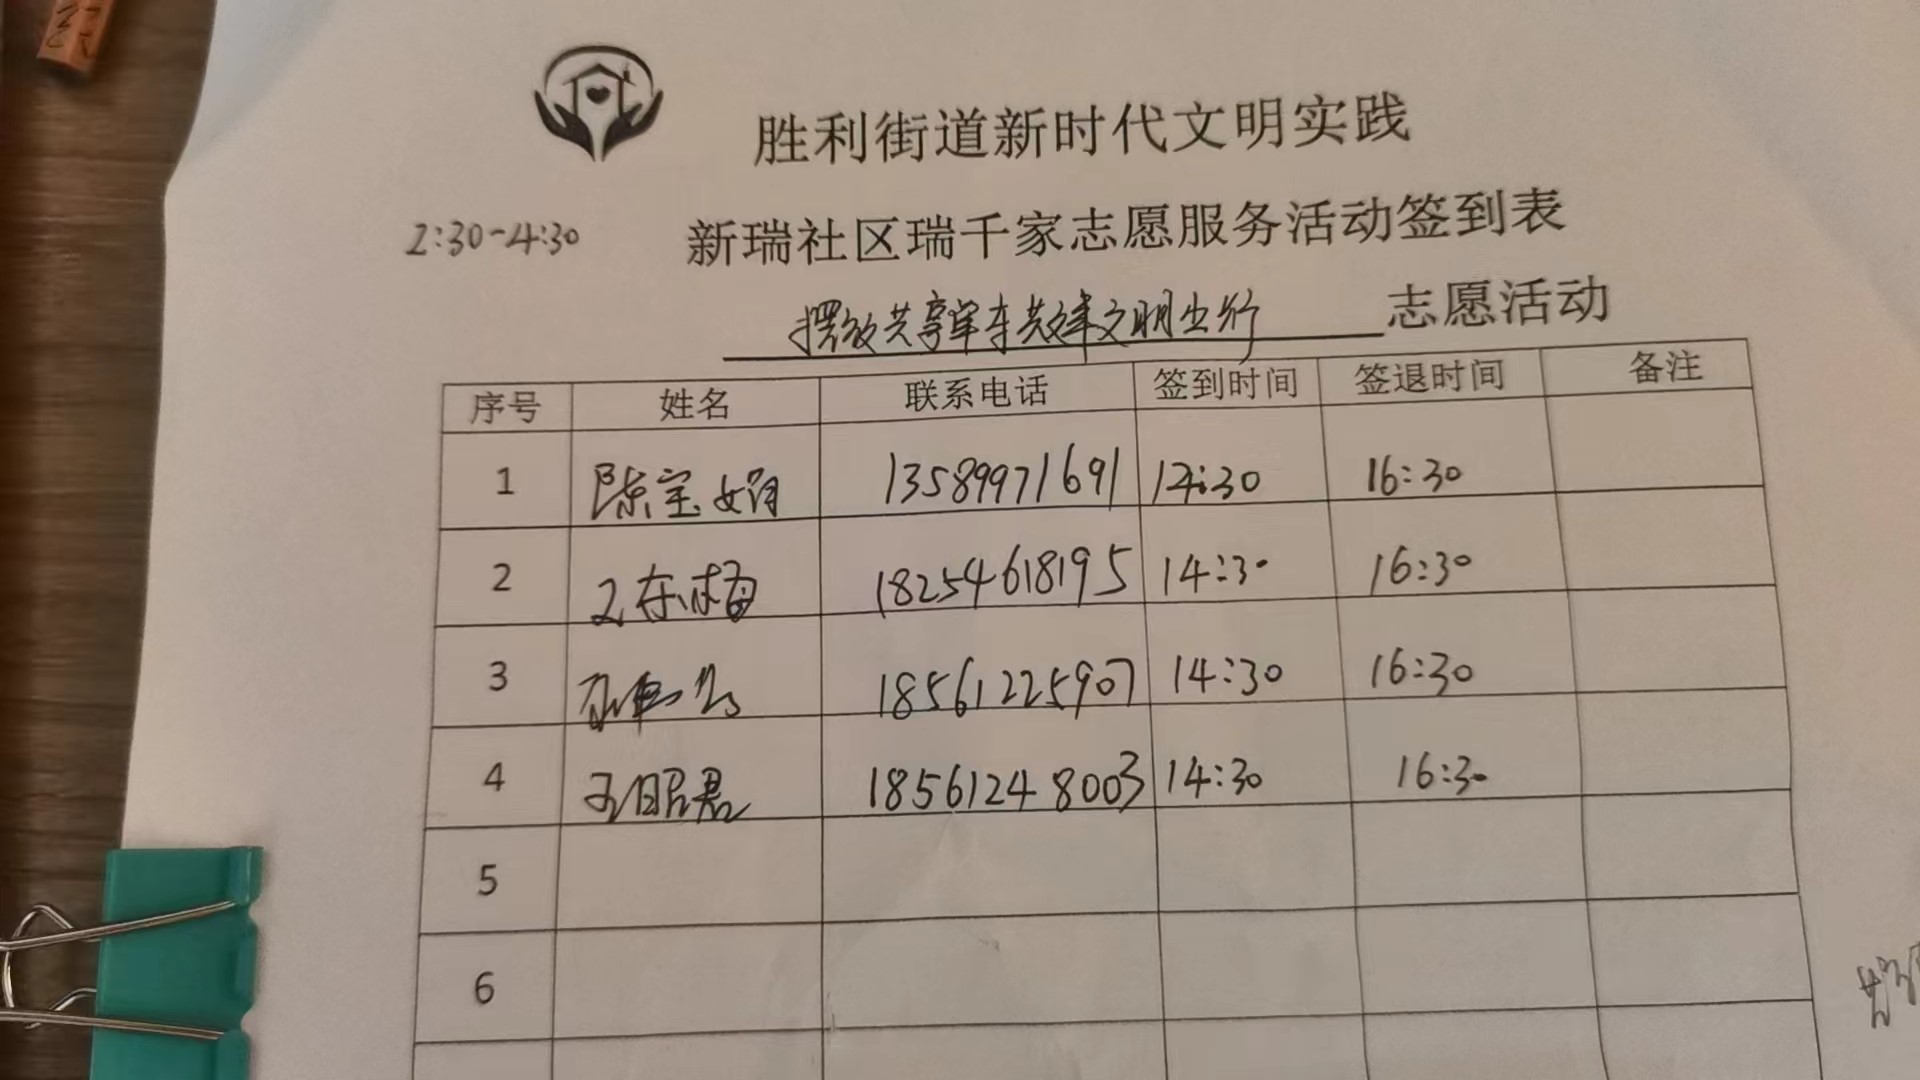 胜利街道新时代文明实践
2:30-4:30 新瑞社区瑞千家志愿服务活动签到表
摆放共享单车共建文明出行 志愿活动
序号 姓名 联系电话 签到时间 签退时间 备注
1 陈宝娟 13589971691 14:30 16:30
2 王东梅 18254618195 14:30 16:30
3 18561225907 14:30 16:30
4 王昭君 18561248003 14:30 16:30
5
6